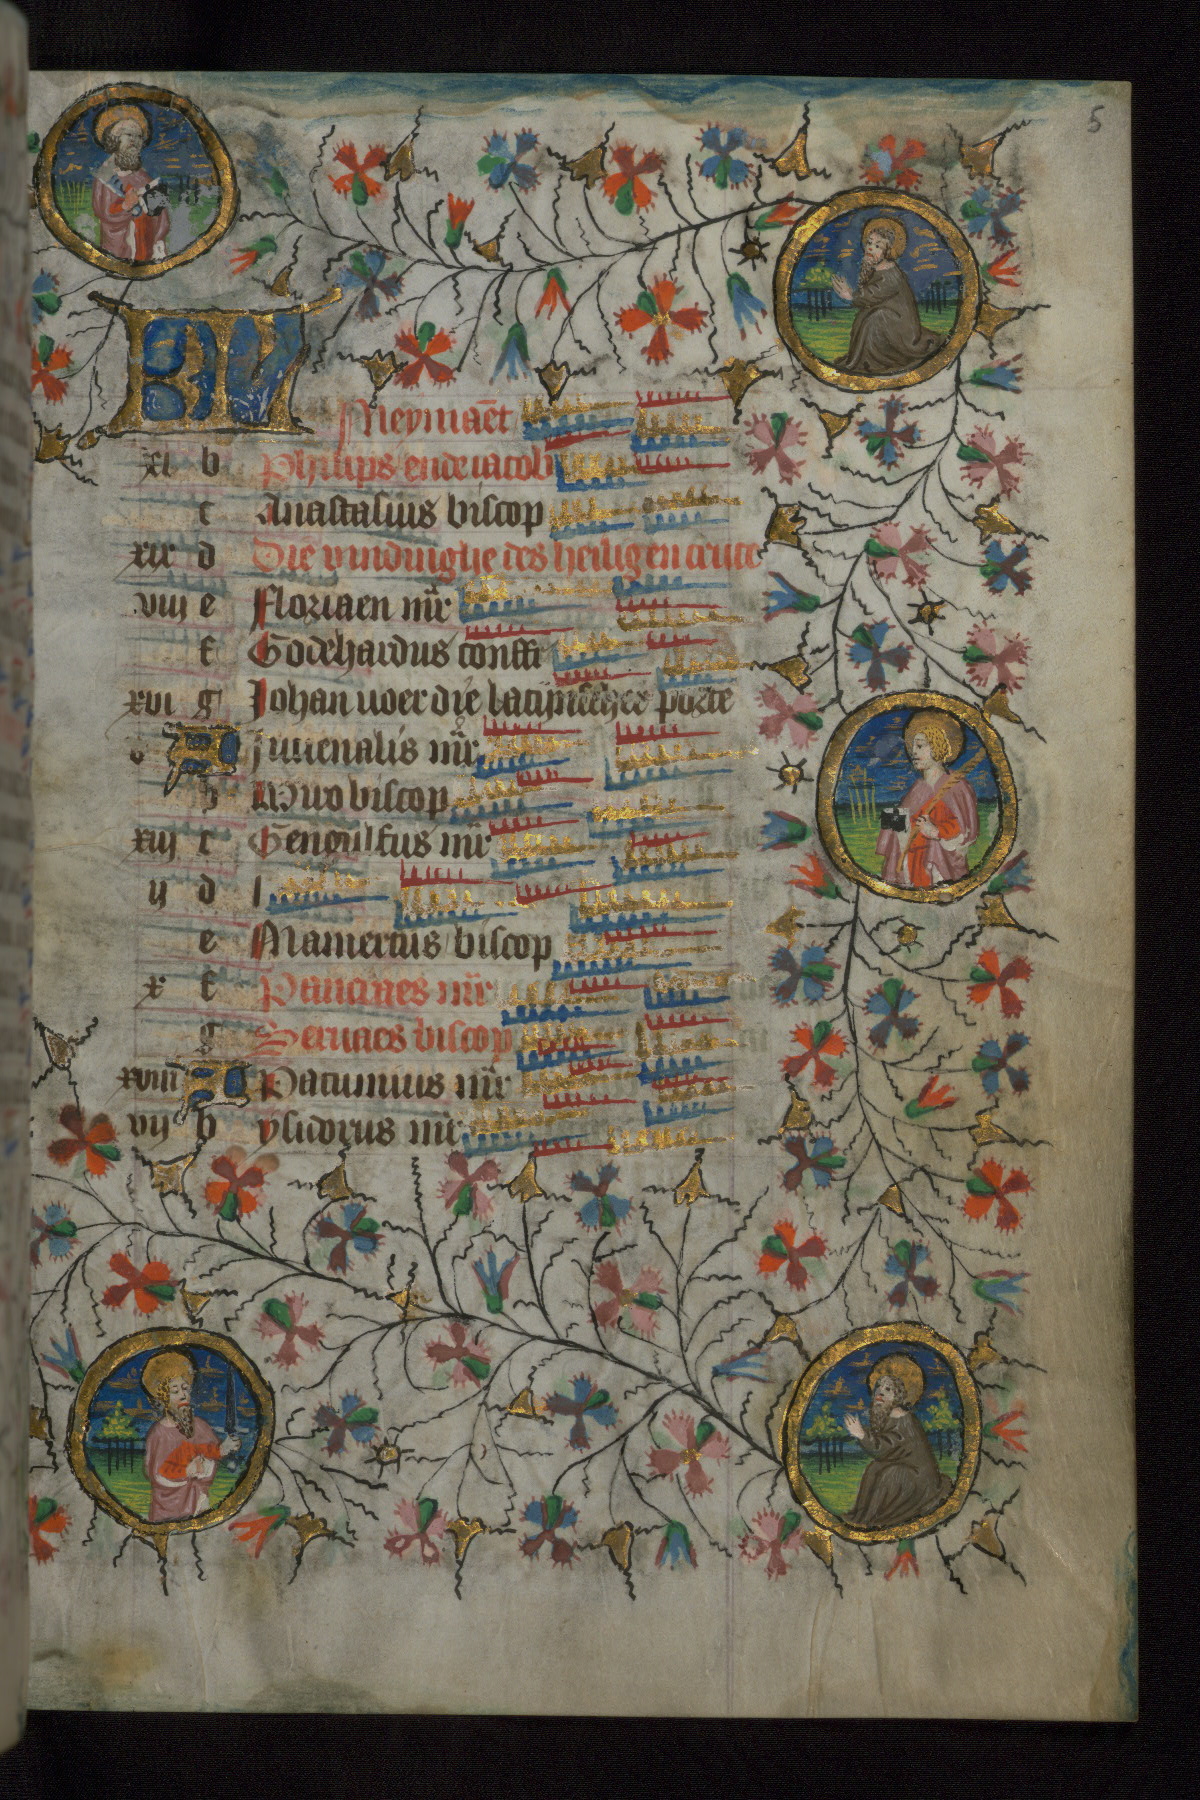 5
KL Meymaēt
xi b Philips ende iacob
c Anastasius biscop
xix d Die vindinghe des heilighen cruce
viii e Floriaen mr̄
f Godehardus confes
xvi g Johan voer die latijnscher porte
v A Juuenalis mr̄
b Wiro biscop
xiii c Gengulfus mr̄
ii d
e Mamertus biscop
x f Pancraes mr̄
g Seruaes biscop
xviii A Pacunius mr̄
vii b ysidorus mr̄